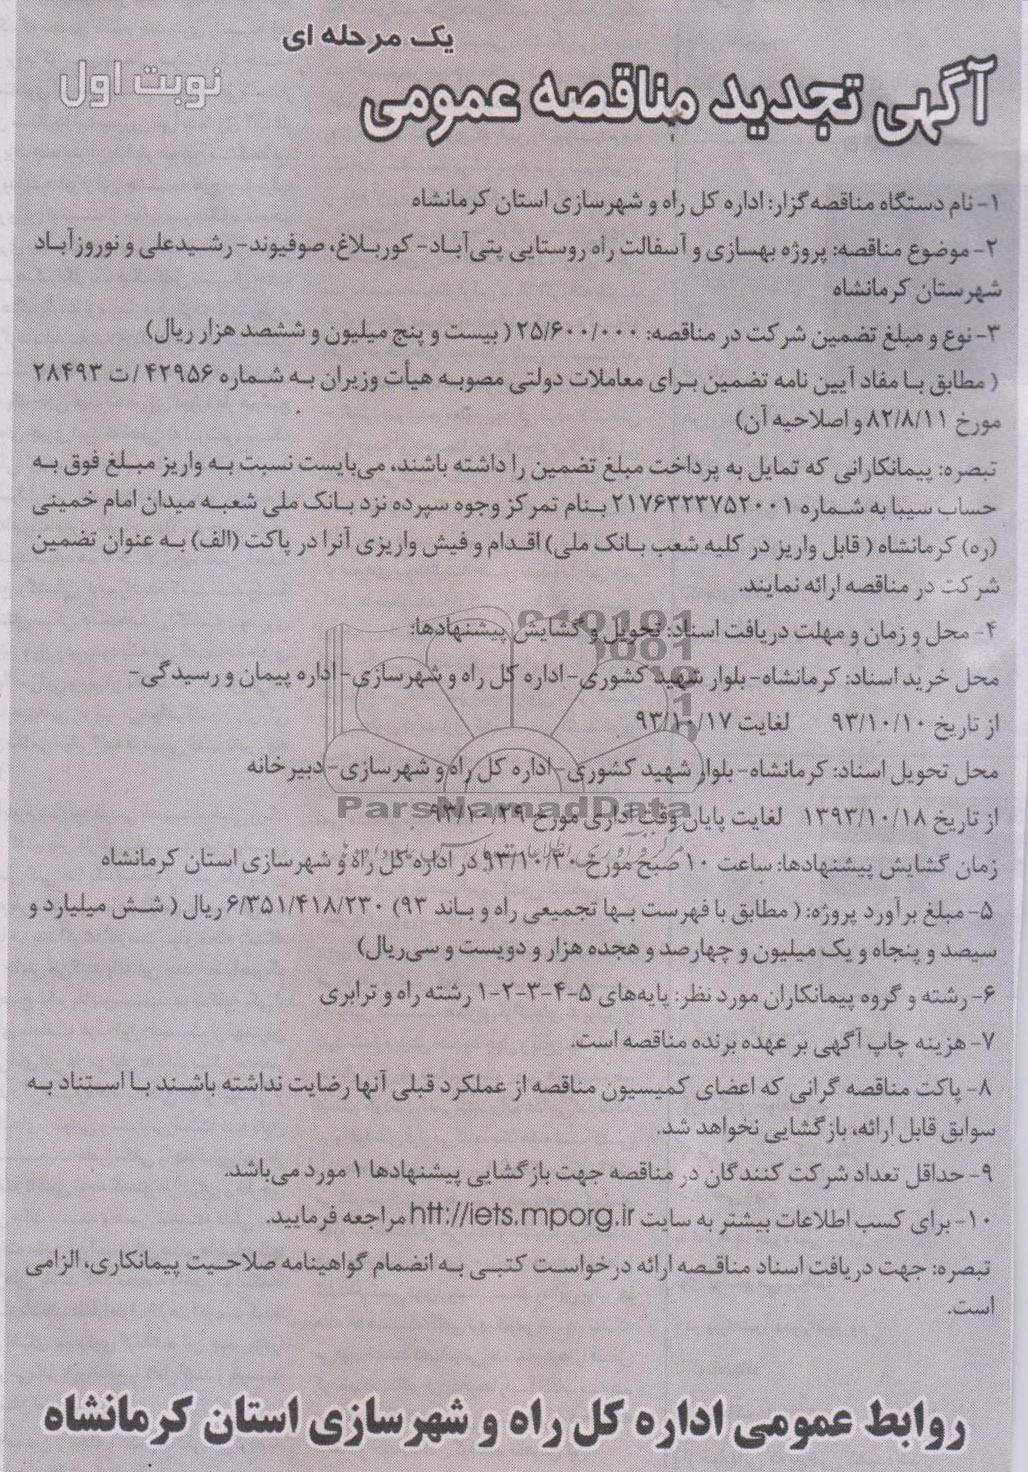 یک مرحله ای
آگهی تجدید مناقصه عمومی
نوبت اول
۱- نام دستگاه مناقصه گزار: اداره کل راه و شهرسازی استان کرمانشاه
۲- موضوع مناقصه: پروژه بهسازی و آسفالت راه روستایی پتی‌آباد- کوربلاغ، صوفیوند- رشیدعلی و نوروزآباد
شهرستان کرمانشاه
۳- نوع و مبلغ تضمین شرکت در مناقصه: ۲۵/۶۰۰/۰۰۰ ( بیست و پنج میلیون و ششصد هزار ریال)
( مطابق با مفاد آیین نامه تضمین برای معاملات دولتی مصوبه هیأت وزیران به شماره ۴۲۹۵۶ /ت ۲۸۴۹۳
مورخ ۸۲/۸/۱۱ و اصلاحیه آن)
تبصره: پیمانکارانی که تمایل به پرداخت مبلغ تضمین را داشته باشند، می‌بایست نسبت به واریز مبلغ فوق به
حساب سیبا به شماره ۲۱۷۶۳۲۳۷۵۲۰۰۱ بنام تمرکز وجوه سپرده نزد بانک ملی شعبه میدان امام خمینی
(ره) کرمانشاه ( قابل واریز در کلیه شعب بانک ملی) اقدام و فیش واریزی آنرا در پاکت (الف) به عنوان تضمین
شرکت در مناقصه ارائه نمایند.
۴- محل و زمان و مهلت دریافت اسناد: تحویل و گشایش پیشنهادها:
محل خرید اسناد: کرمانشاه- بلوار شهید کشوری- اداره کل راه و شهرسازی- اداره پیمان و رسیدگی-
از تاریخ ۹۳/۱۰/۱۰ لغایت ۹۳/۱۰/۱۷
محل تحویل اسناد: کرمانشاه- بلوار شهید کشوری- اداره کل راه و شهرسازی- دبیرخانه
ParsNamadData
از تاریخ ۱۳۹۳/۱۰/۱۸ لغایت پایان وقت اداری مورخ ۹۳/۱۰/۲۹
زمان گشایش پیشنهادها: ساعت ۱۰ صبح مورخ ۹۳/۱۰/۳۰ در اداره کل راه و شهرسازی استان کرمانشاه
۵- مبلغ برآورد پروژه: ( مطابق با فهرست بها تجمیعی راه و باند ۹۳) ۶/۳۵۱/۴۱۸/۲۳۰ ریال ( شش میلیارد و
سیصد و پنجاه و یک میلیون و چهارصد و هجده هزار و دویست و سی‌ریال)
۶- رشته و گروه پیمانکاران مورد نظر: پایه‌های ۵-۴-۳-۲-۱ رشته راه و ترابری
۷- هزینه چاپ آگهی بر عهده برنده مناقصه است.
۸- پاکت مناقصه گرانی که اعضای کمیسیون مناقصه از عملکرد قبلی آنها رضایت نداشته باشند با استناد به
سوابق قابل ارائه، بازگشایی نخواهد شد.
۹- حداقل تعداد شرکت کنندگان در مناقصه جهت بازگشایی پیشنهادها ۱ مورد می‌باشد.
۱۰- برای کسب اطلاعات بیشتر به سایت htt://iets.mporg.ir مراجعه فرمایید.
تبصره: جهت دریافت اسناد مناقصه ارائه درخواست کتبی به انضمام گواهینامه صلاحیت پیمانکاری، الزامی
است.
روابط عمومی اداره کل راه و شهرسازی استان کرمانشاه